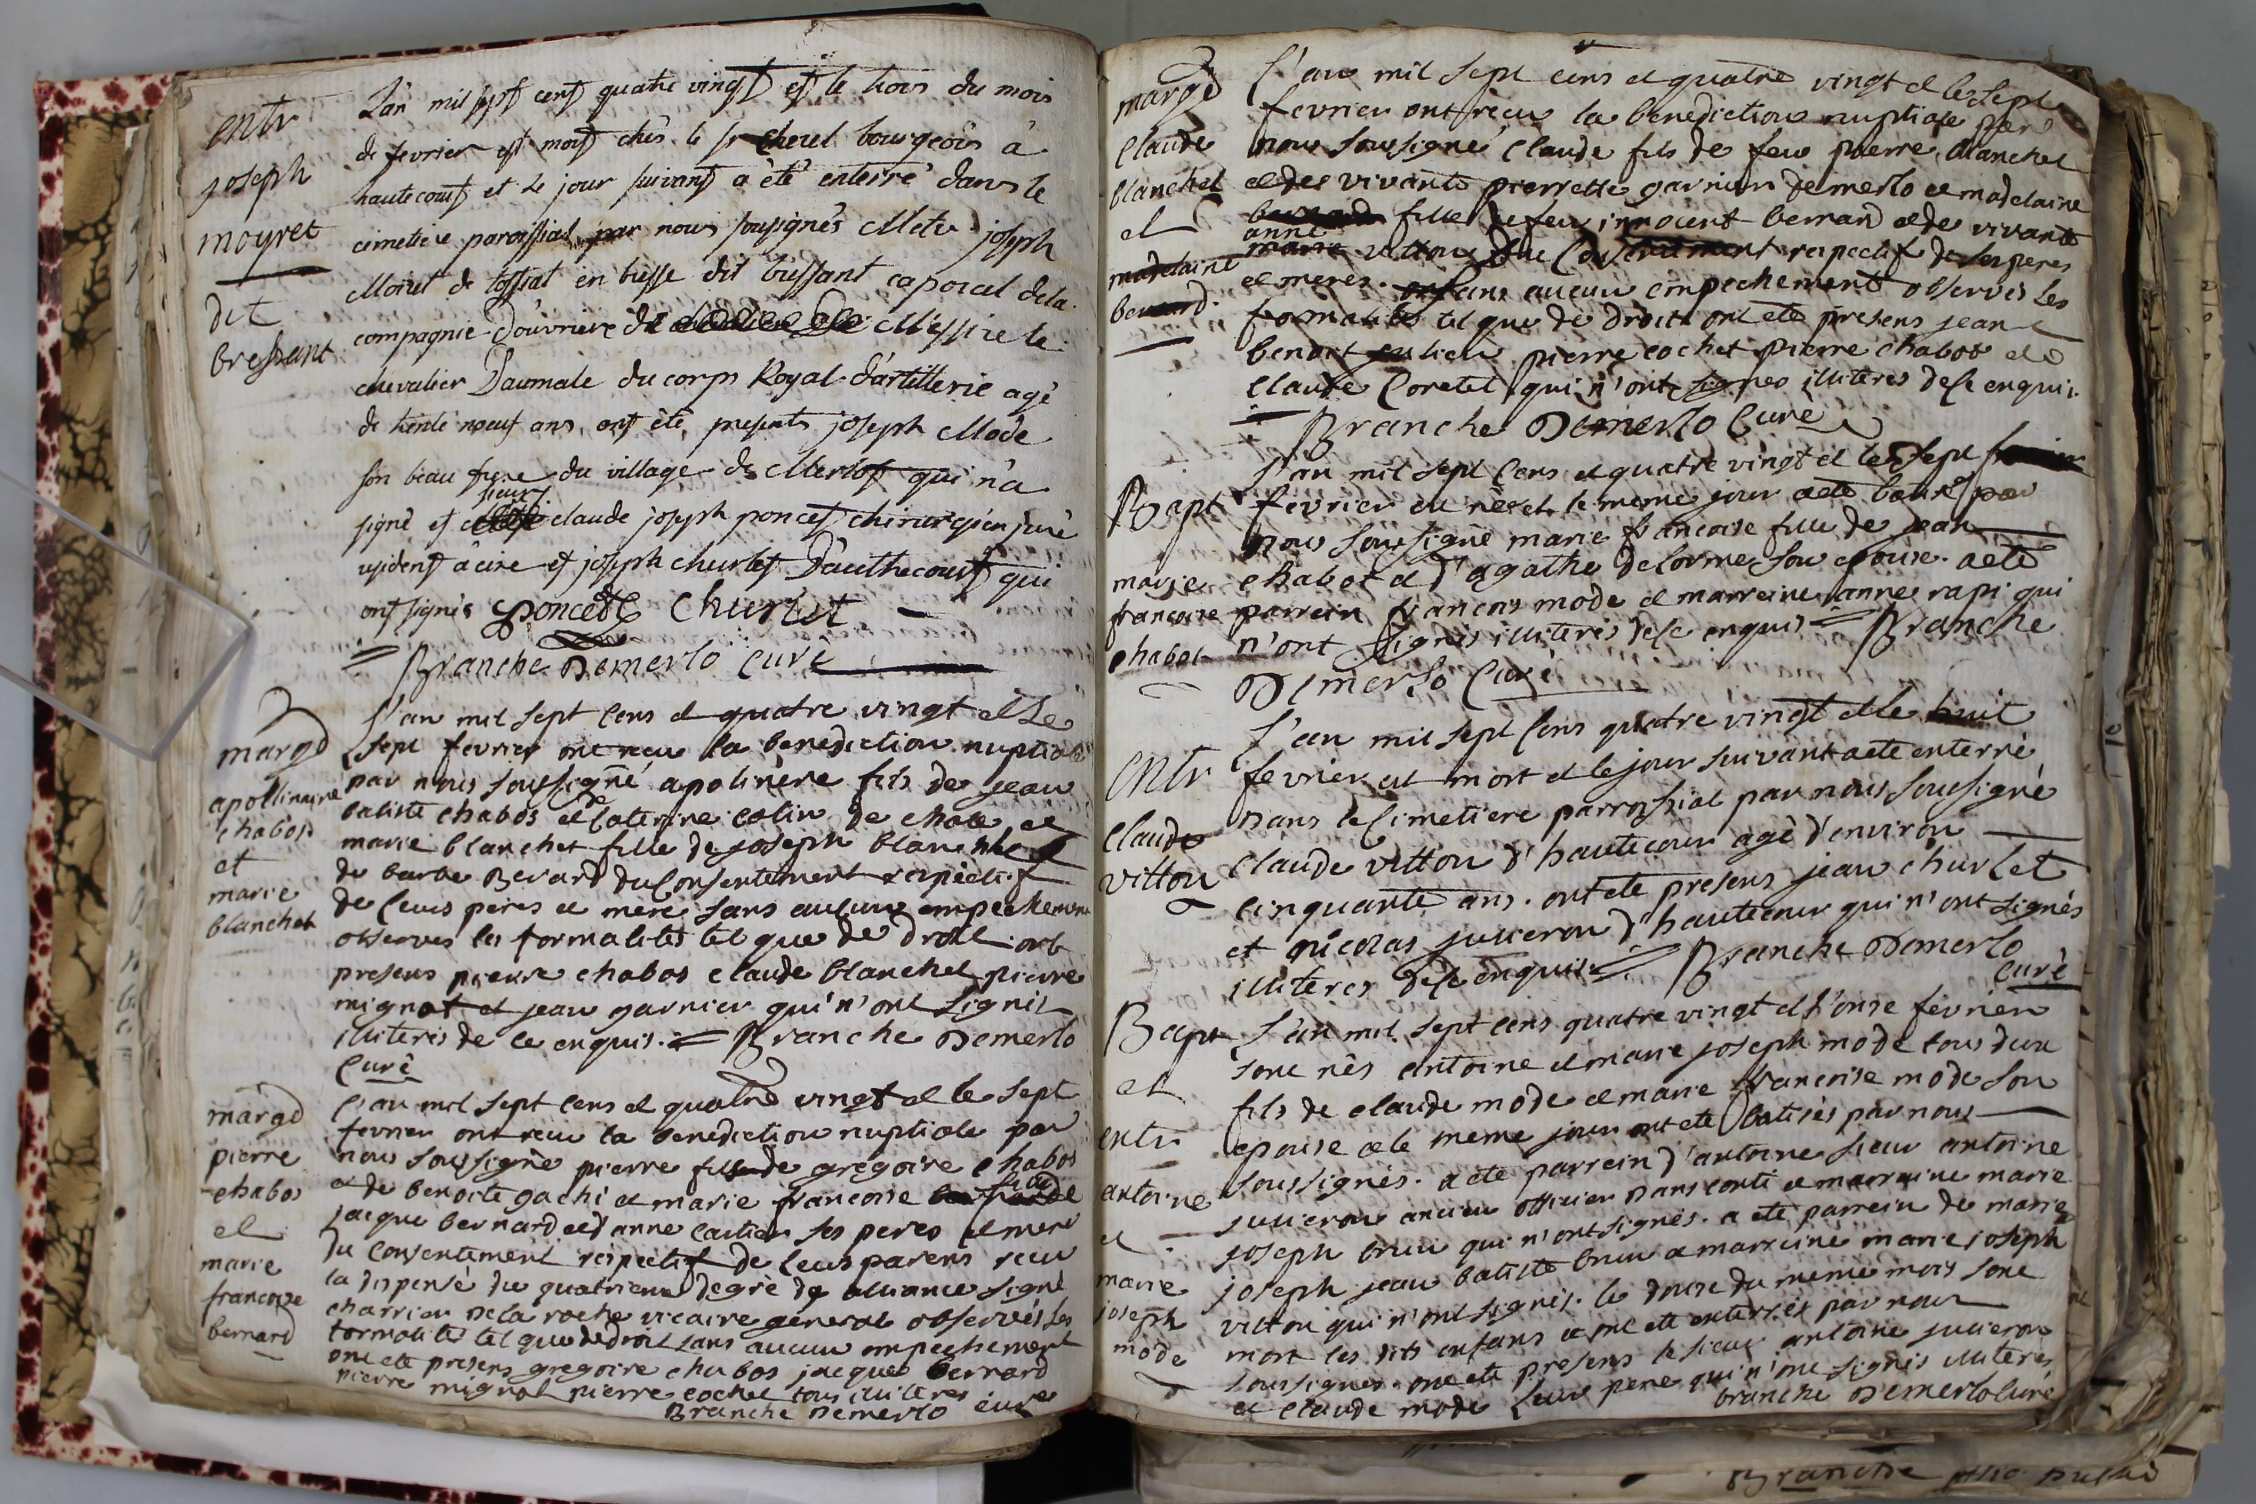 entr
joseph
moyret
dit
bressant
L'an mil sept cent quatre vingt et le trois du mois
de fevrier est mort chés le sr cherel bourgeois à
hautecourt et le jour suivant a été enterré dans le
cimetiere paroissial par nous sousignés joseph
Moiret de tossiat en bresse dit bressant caporal dela
compagnie d'ouvriers de Messire le
chevalier Daumale du corps Royal d'artillerie agé
de trente neuf ans, ont été presents joseph Mode
son beau frere du village de Merlot qui n'a
signé et sieur claude joseph poncet chirurgien juré
resident à cize et joseph churlet D'authecourt qui
ont signés Poncet Churlet
Branche Demerlo curé
marge
apollinaire
chabos
et
marie
blanchet
L'an mil sept cens et quatre vingt et le
sept fevrier ont recu la benediction nuptiale
par nous soussigné apolinère fils de jean
batiste chabos et Caterine colin de chole et
marie blanchet fille de joseph blanchet et
de barbe Berard du Consentement respectif
de leurs peres et mere sans aucun empechement
observés les formalités tel que de droit ont
presens pierre chabos claude blanchet pierre
mignot et jean garnier qui n'ont signés
illiterés de ce enquis. Branche Demerlo
Curé
marge
pierre
chabos
et
marie
francoise
bernard
L'an mil sept cens et quatre vingt et le sept
fevrier ont recu la benediction nuptiale par
nous soussigné pierre fils de gregoire chabos
et de benoite gachi et marie francoise fille de
jacque bernard et d'anne cartier ses peres et mere
du consentement respectif de leurs parens recu
la dispense du quatrieme degré de alliance signé
charrier Dela roche vicaire general observés les
formalités tel que de droit sans aucun empechement
ont ete presens gregoire chabos jacques Bernard
pierre mignot pierre cochet tous illiteres
Branche Demerlo curé
marge
Claude
blanchet
et
madelaine
bernard.
L'an mil sept cens et quatre vingt et le sept
fevrier ont recu la benediction nuptiale par
nous soussigné Claude fils de feu pierre blanchet
et de vivante pierrette garnier de merlo et madelaine
bernard fille de feu innocent bernard et de vivante
anne
marie vitton du Consentement respectif de ses peres
et meres. sans aucun empechement observés les
formalités tel que de droit ont ete presens jean
benoit julien pierre cochet pierre chabot et
claude Coretel qui n'ont signes illiterés de ce enquis.
Branche Demerlo Curé
Bapt
marie
francoise
chabot
L'an mil sept Cens et quatre vingt et le sept
fevrier est née et le meme jour a ete batisé par
nous soussigné marie francoise fille de jean
chabot et d'agathe delorme son epouse. a ete
parrein francois mode et marreine anne rapi qui
n'ont signés illiterés de ce enquis Branche
Demerlo Curé
entr
Claude
vitton
L'an mil sept Cens quatre vingt et le huit
fevrier est mort et le jour suivant a ete enterré
Dans le Cimetiere parrossial par nous soussigné
claude vitton d'hautecour agé d'environ
cinquante ans. ont ete presens jean churlet
et nicolas juvieron d'hautecour qui n'ont signés
illiterés de ce enquis Branche Demerlo
curé
Bapt
et
entr
antoine
et
marie
joseph
mode
L'an mil sept cens quatre vingt et l'onse fevrier
sont nés antoine et marie joseph mode tous deux
fils de claude mode et marie francoise mode son
epouse et le meme jour ont ete batisés par nous
soussignés. a ete parrein d'antoine sieur antoine
juvieron ancien officier dans conti et marraine marie
joseph brun qui n'ont signés. a ete parrein de marie
joseph jean batiste brun et marreine marie joseph
vitton qui n'ont signés. le douze du meme mois sont
mort les dits enfans et ont ete enterrés par nous
soussignés. ont ete presens le sieur antoine juvieron
et claude mode leur pere qui n'ont signés illiterés
branche Demerlo Curé
Branche